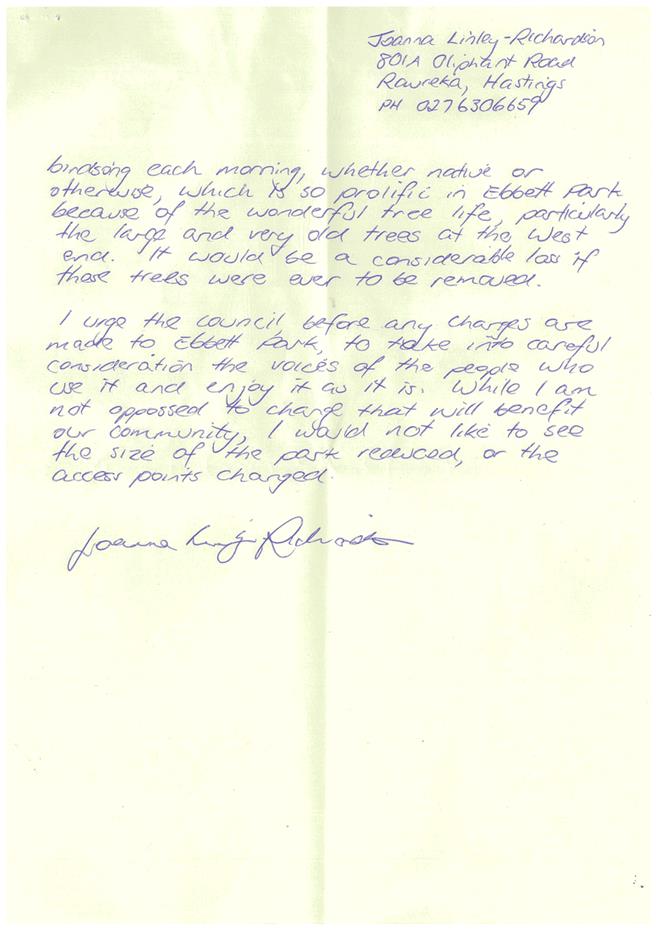 Joanna Linley-Richardson
801A Oliphant Road
Raureka, Hastings
PH 0276306659
birdsong each morning, whether native or
otherwise, which is so prolific in Ebbett Park
because of the wonderful tree life, particularly
the large and very old trees at the west
end. It would be a considerable loss if
those trees were ever to be removed.
I urge the council, before any changes are
made to Ebbett Park, to take into careful
consideration the voices of the people who
use it and enjoy it as it is. While I am
not oppossed to change that will benefit
our community, I would not like to see
the size of the park reduced, or the
access points changed.
Joanna Linley-Richardson